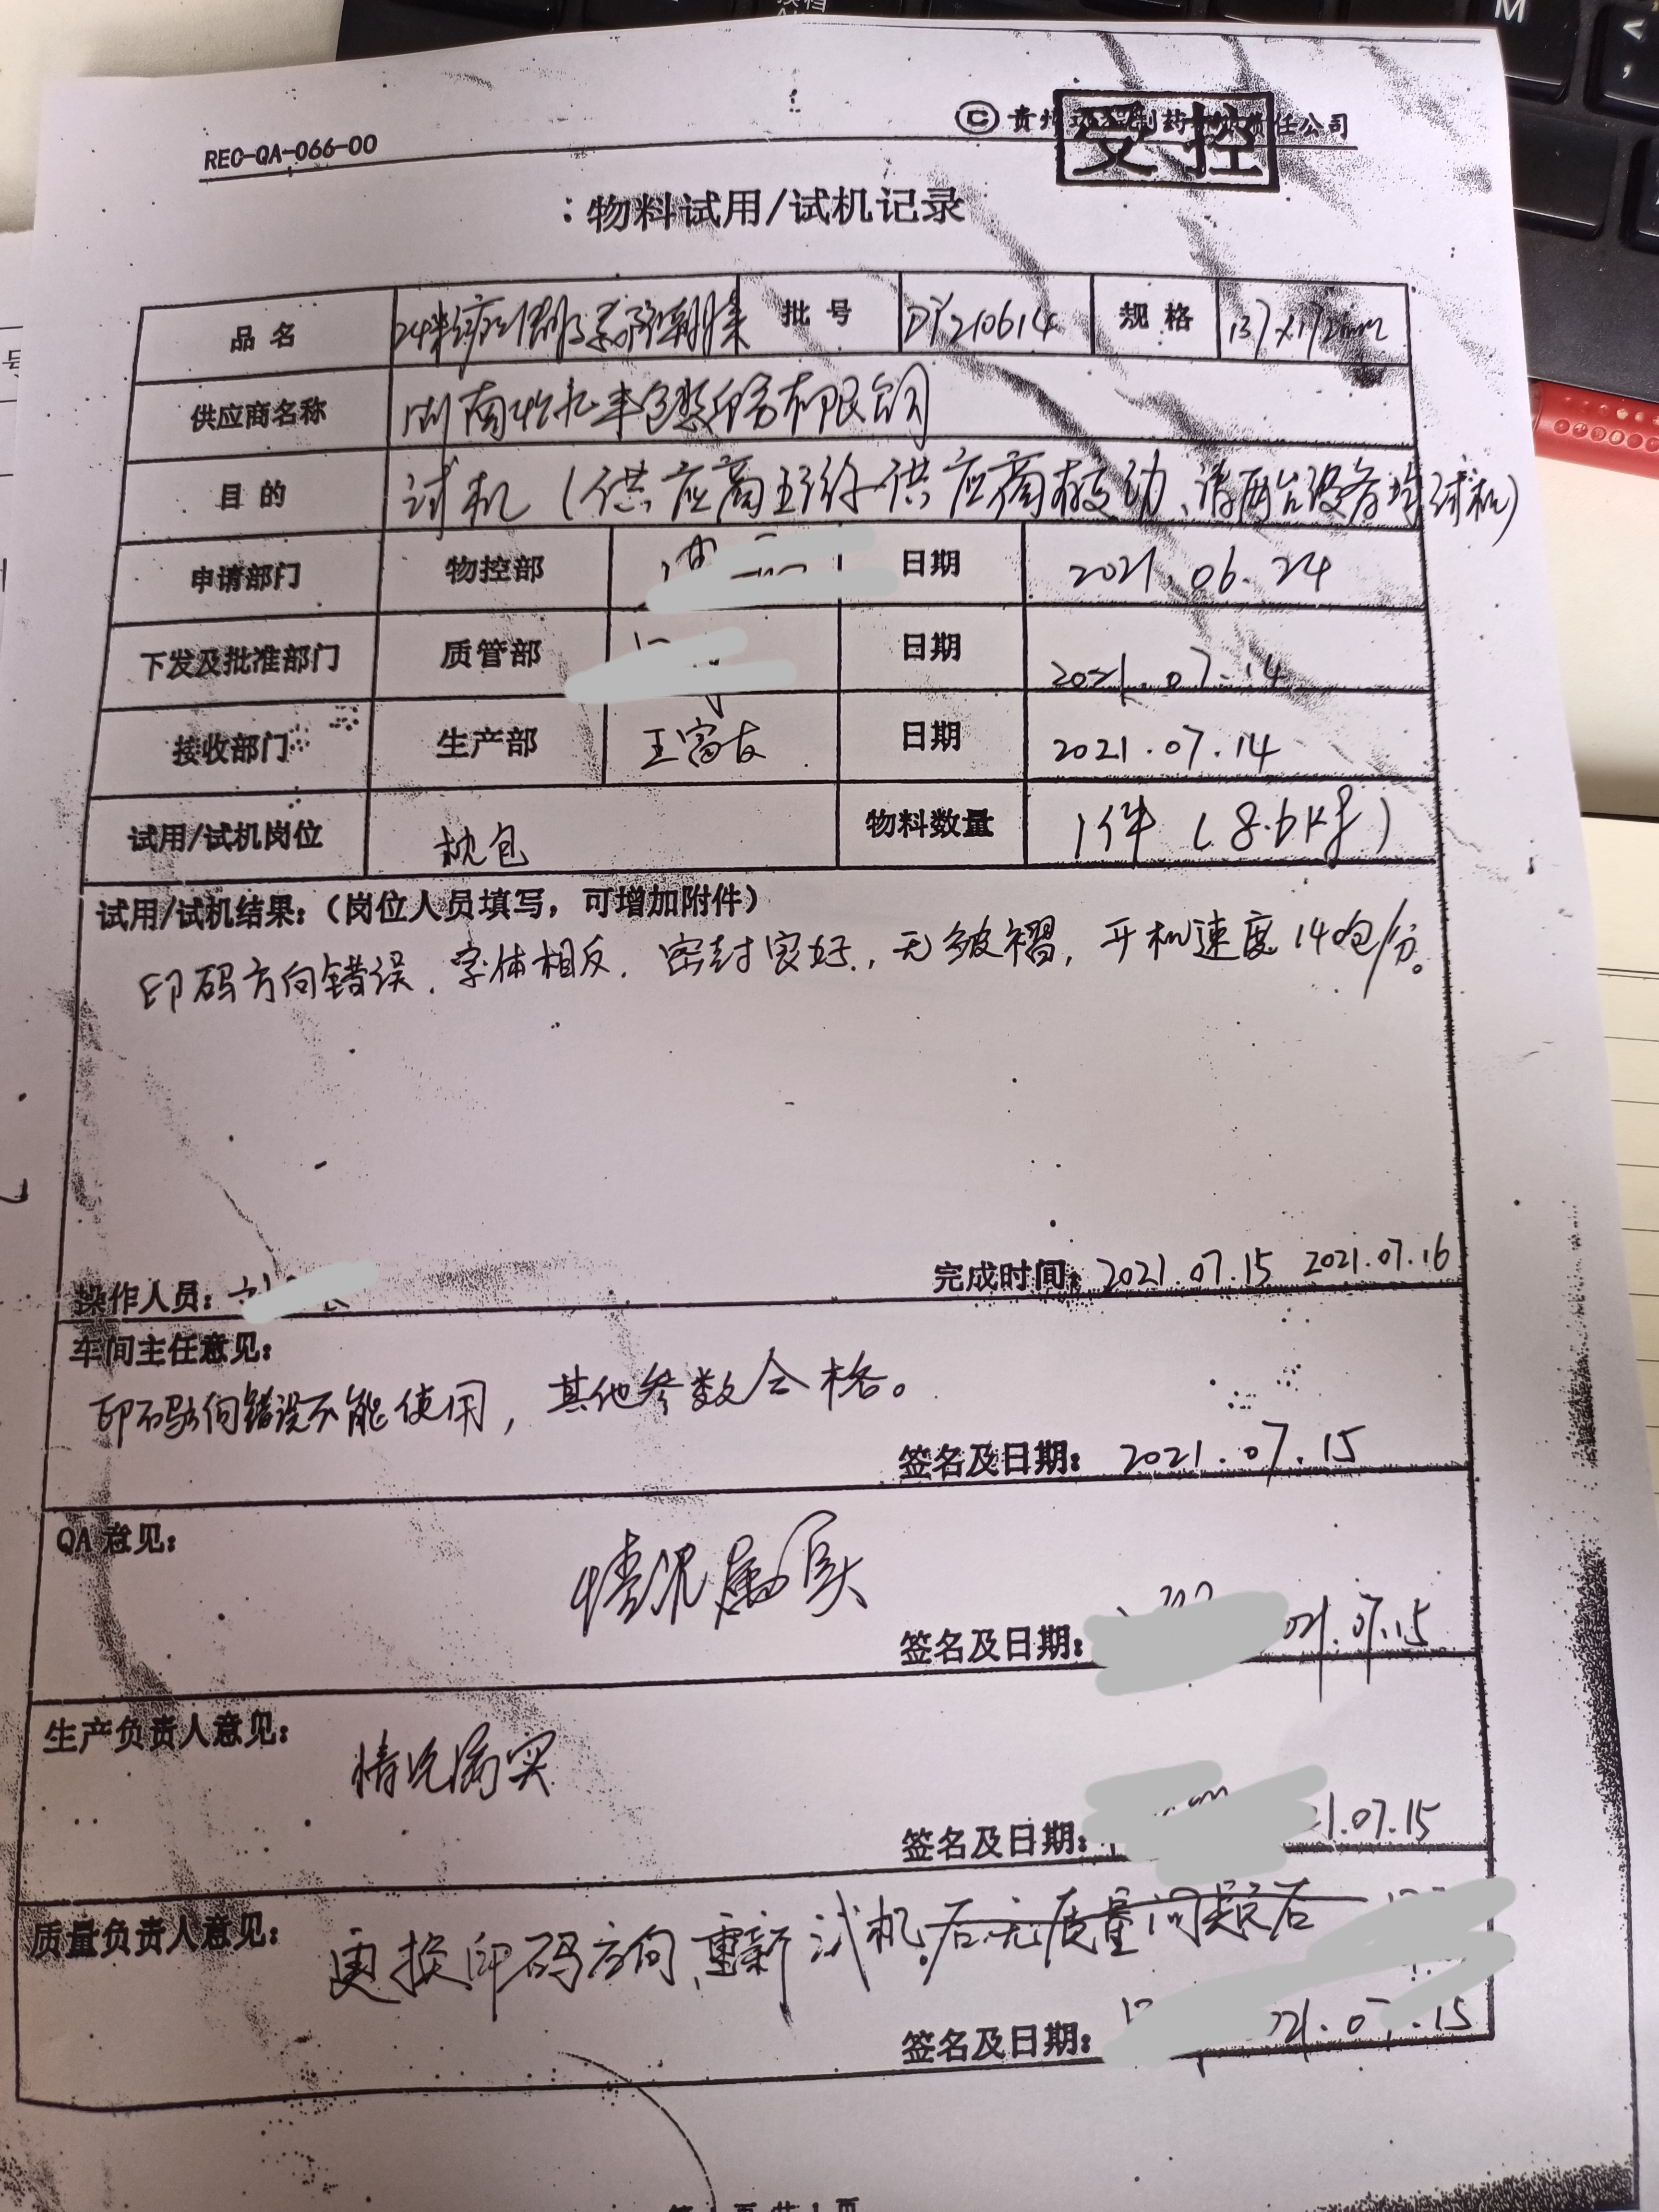 REC-QA-066-00
© 贵州 制药 责任公司
受控
物料试用/试机记录
品名 批号 DY210614 规格 137×172mm
供应商名称 湖南 丰包装 份有限公司
目的 试机(供应商 供应商 动、请两台设备均试机)
申请部门 物控部 日期 2021.06.24
下发及批准部门 质管部 日期 2021.07.14
接收部门 生产部 王富友 日期 2021.07.14
试用/试机岗位 枕包 物料数量 1件(8.6kg)
试用/试机结果:(岗位人员填写,可增加附件)
印码方向错误.字体相反.密封良好,无皱褶,开机速度140包/分。
操作人员: 完成时间: 2021.07.15 2021.07.16
车间主任意见:
印码方向错误不能使用,其他参数合格。
签名及日期: 2021.07.15
QA 意见:
情况属实
签名及日期: 021.07.15
生产负责人意见:
情况属实
签名及日期: 1.07.15
质量负责人意见:
更换印码方向,重新试机.后无质量问题后
签名及日期: 021.07.15